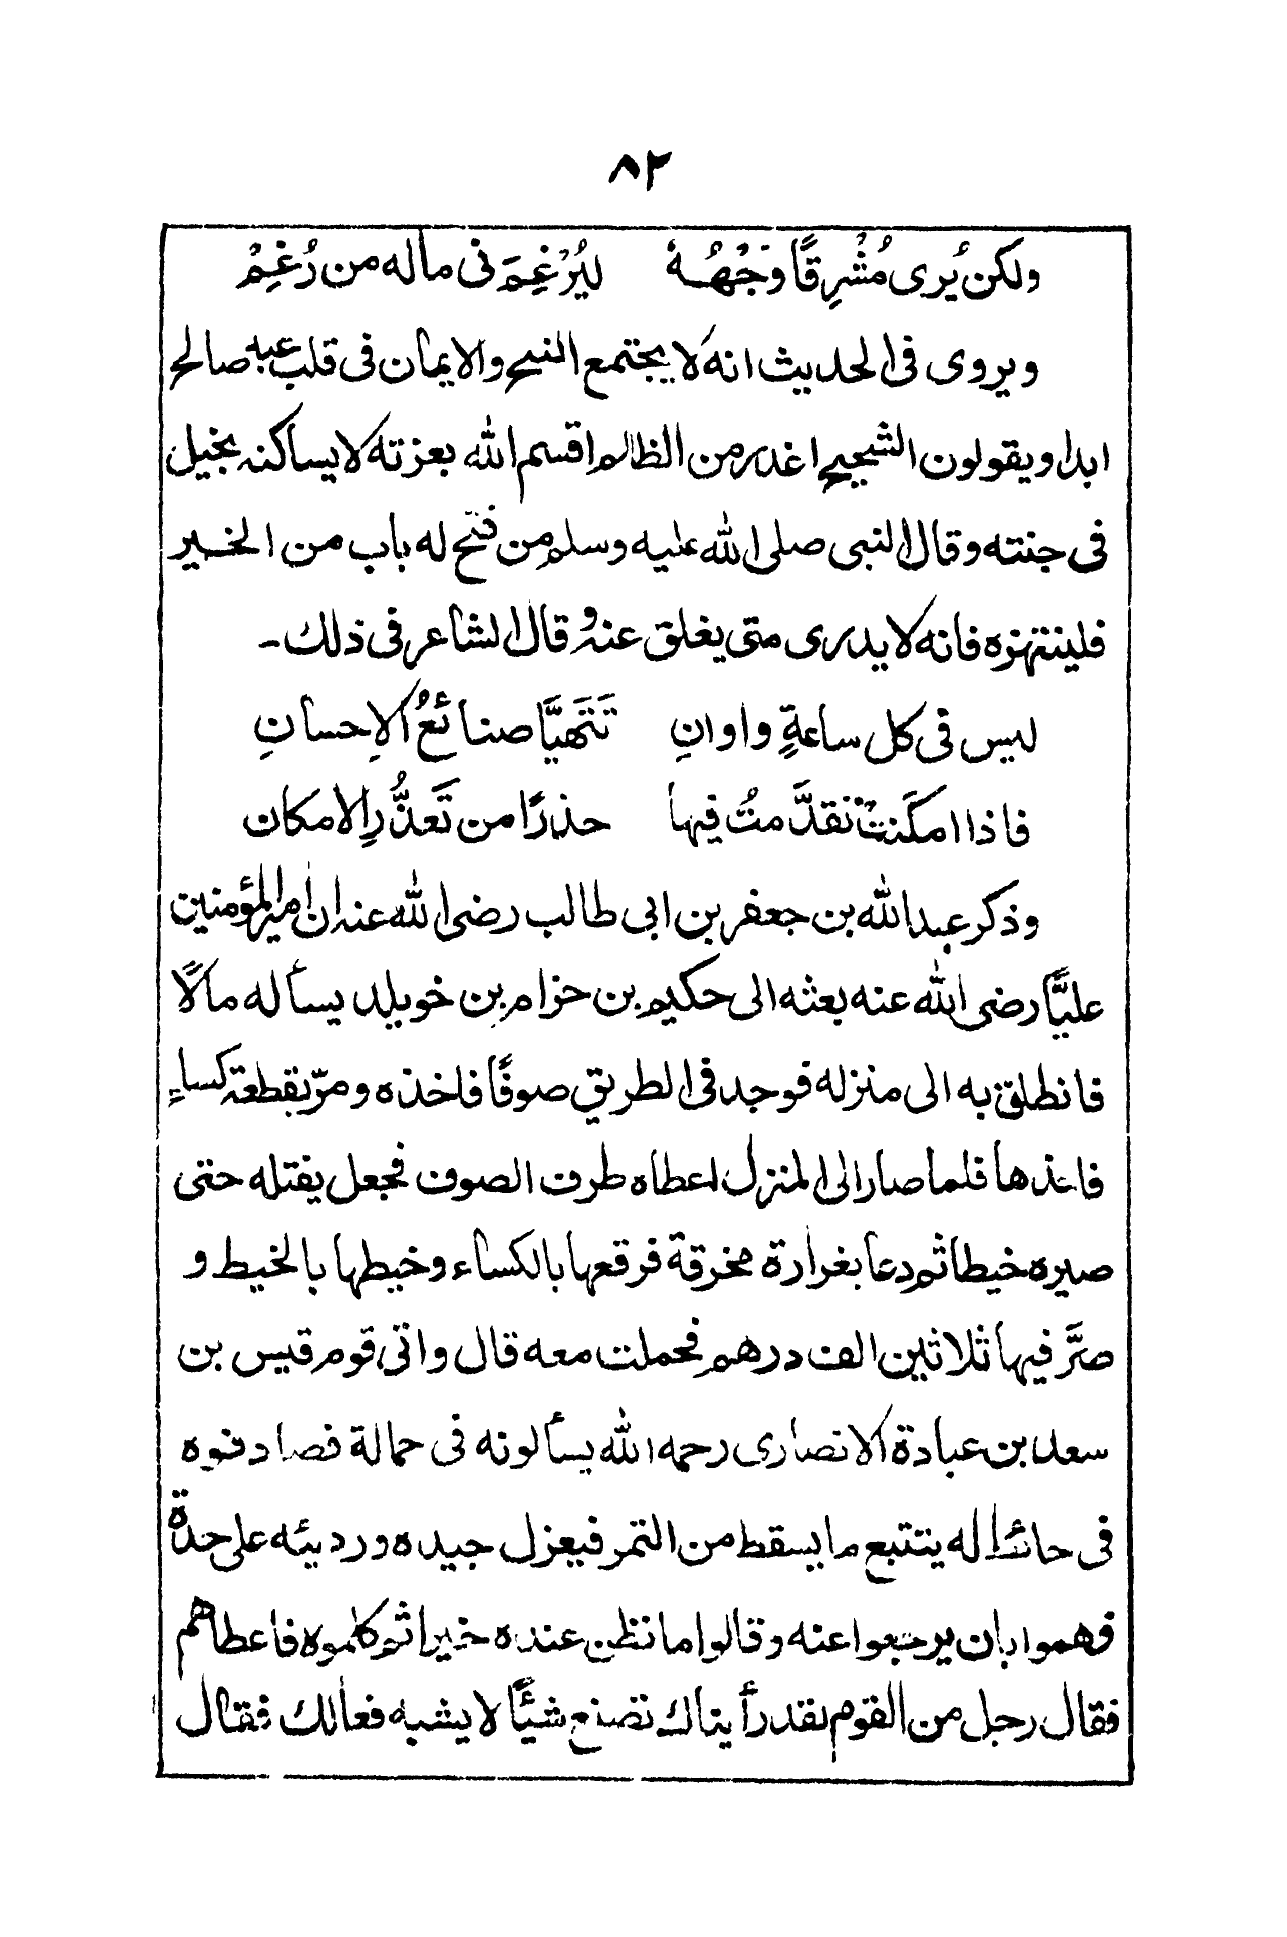 ٨٢
ولكن يُرى مُشْرِقًا وَجْهُهُ ليُرْغِمَ في ماله من رُغِمْ
ويروى في الحديث انه لا يجتمع الشح والايمان في قلب عبد صالح
ابدا ويقولون الشحيح اغدر من الظالم اقسم الله بعزته لا يساكنه بخيل
في جنته وقال النبي صلى الله عليه وسلم من فتح له باب من الخير
فلينتهزه فانه لا يدرى متى يغلق عنه وقال الشاعر في ذلك -
ليس في كل ساعةٍ واوانِ تَتَهيَّأ صنائعُ الاِحسانِ
فاذا امكَنتْ تقدَّمتُ فيها حذرًا من تَعذُّرِ الامكان
وذكر عبد الله بن جعفر بن ابى طالب رضى الله عنه ان امير المؤمنين
عليًّا رضى الله عنه بعثه الى حكيم بن حزام بن خويلد يسأله مالًا
فانطلق به الى منزله فوجد في الطريق صوفًا فاخذه ومرّ بقطعة كساءٍ
فاخذها فلما صار الى المنزل اعطاه طرف الصوف فجعل يفتله حتى
صيره خيطا ثم دعا بغرارة مخرقة فرقعها بالكساء وخيطها بالخيط و
صرَّ فيها ثلاثين الف درهم فحملت معه قال واتى قوم قيس بن
سعد بن عبادة الانصارى رحمه الله يسألونه في حمالة فصادفوه
في حائط له يتتبع ما يسقط من التمر فيعزل جيده ورديئه على حدة
فهموا بان يرجعوا عنه وقالوا ما نظن عنده خيرا ثم كلموه فاعطاهم
فقال رجل من القوم لقد رأيناك تصنع شيئًا لا يشبه فعالك فقال